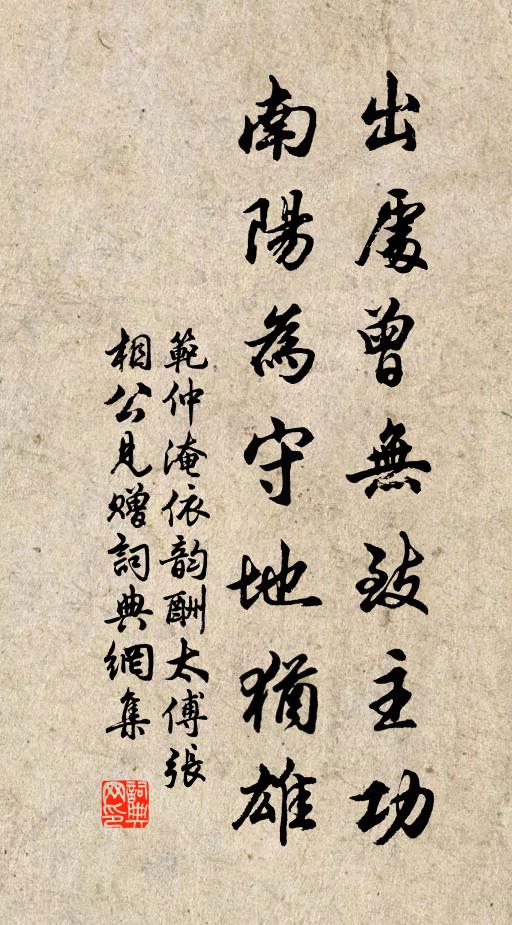 出處曾無致主功
南陽為守地猶雄
範仲淹依韵酬太傅張
相公見贈詞典網集
詞典网印